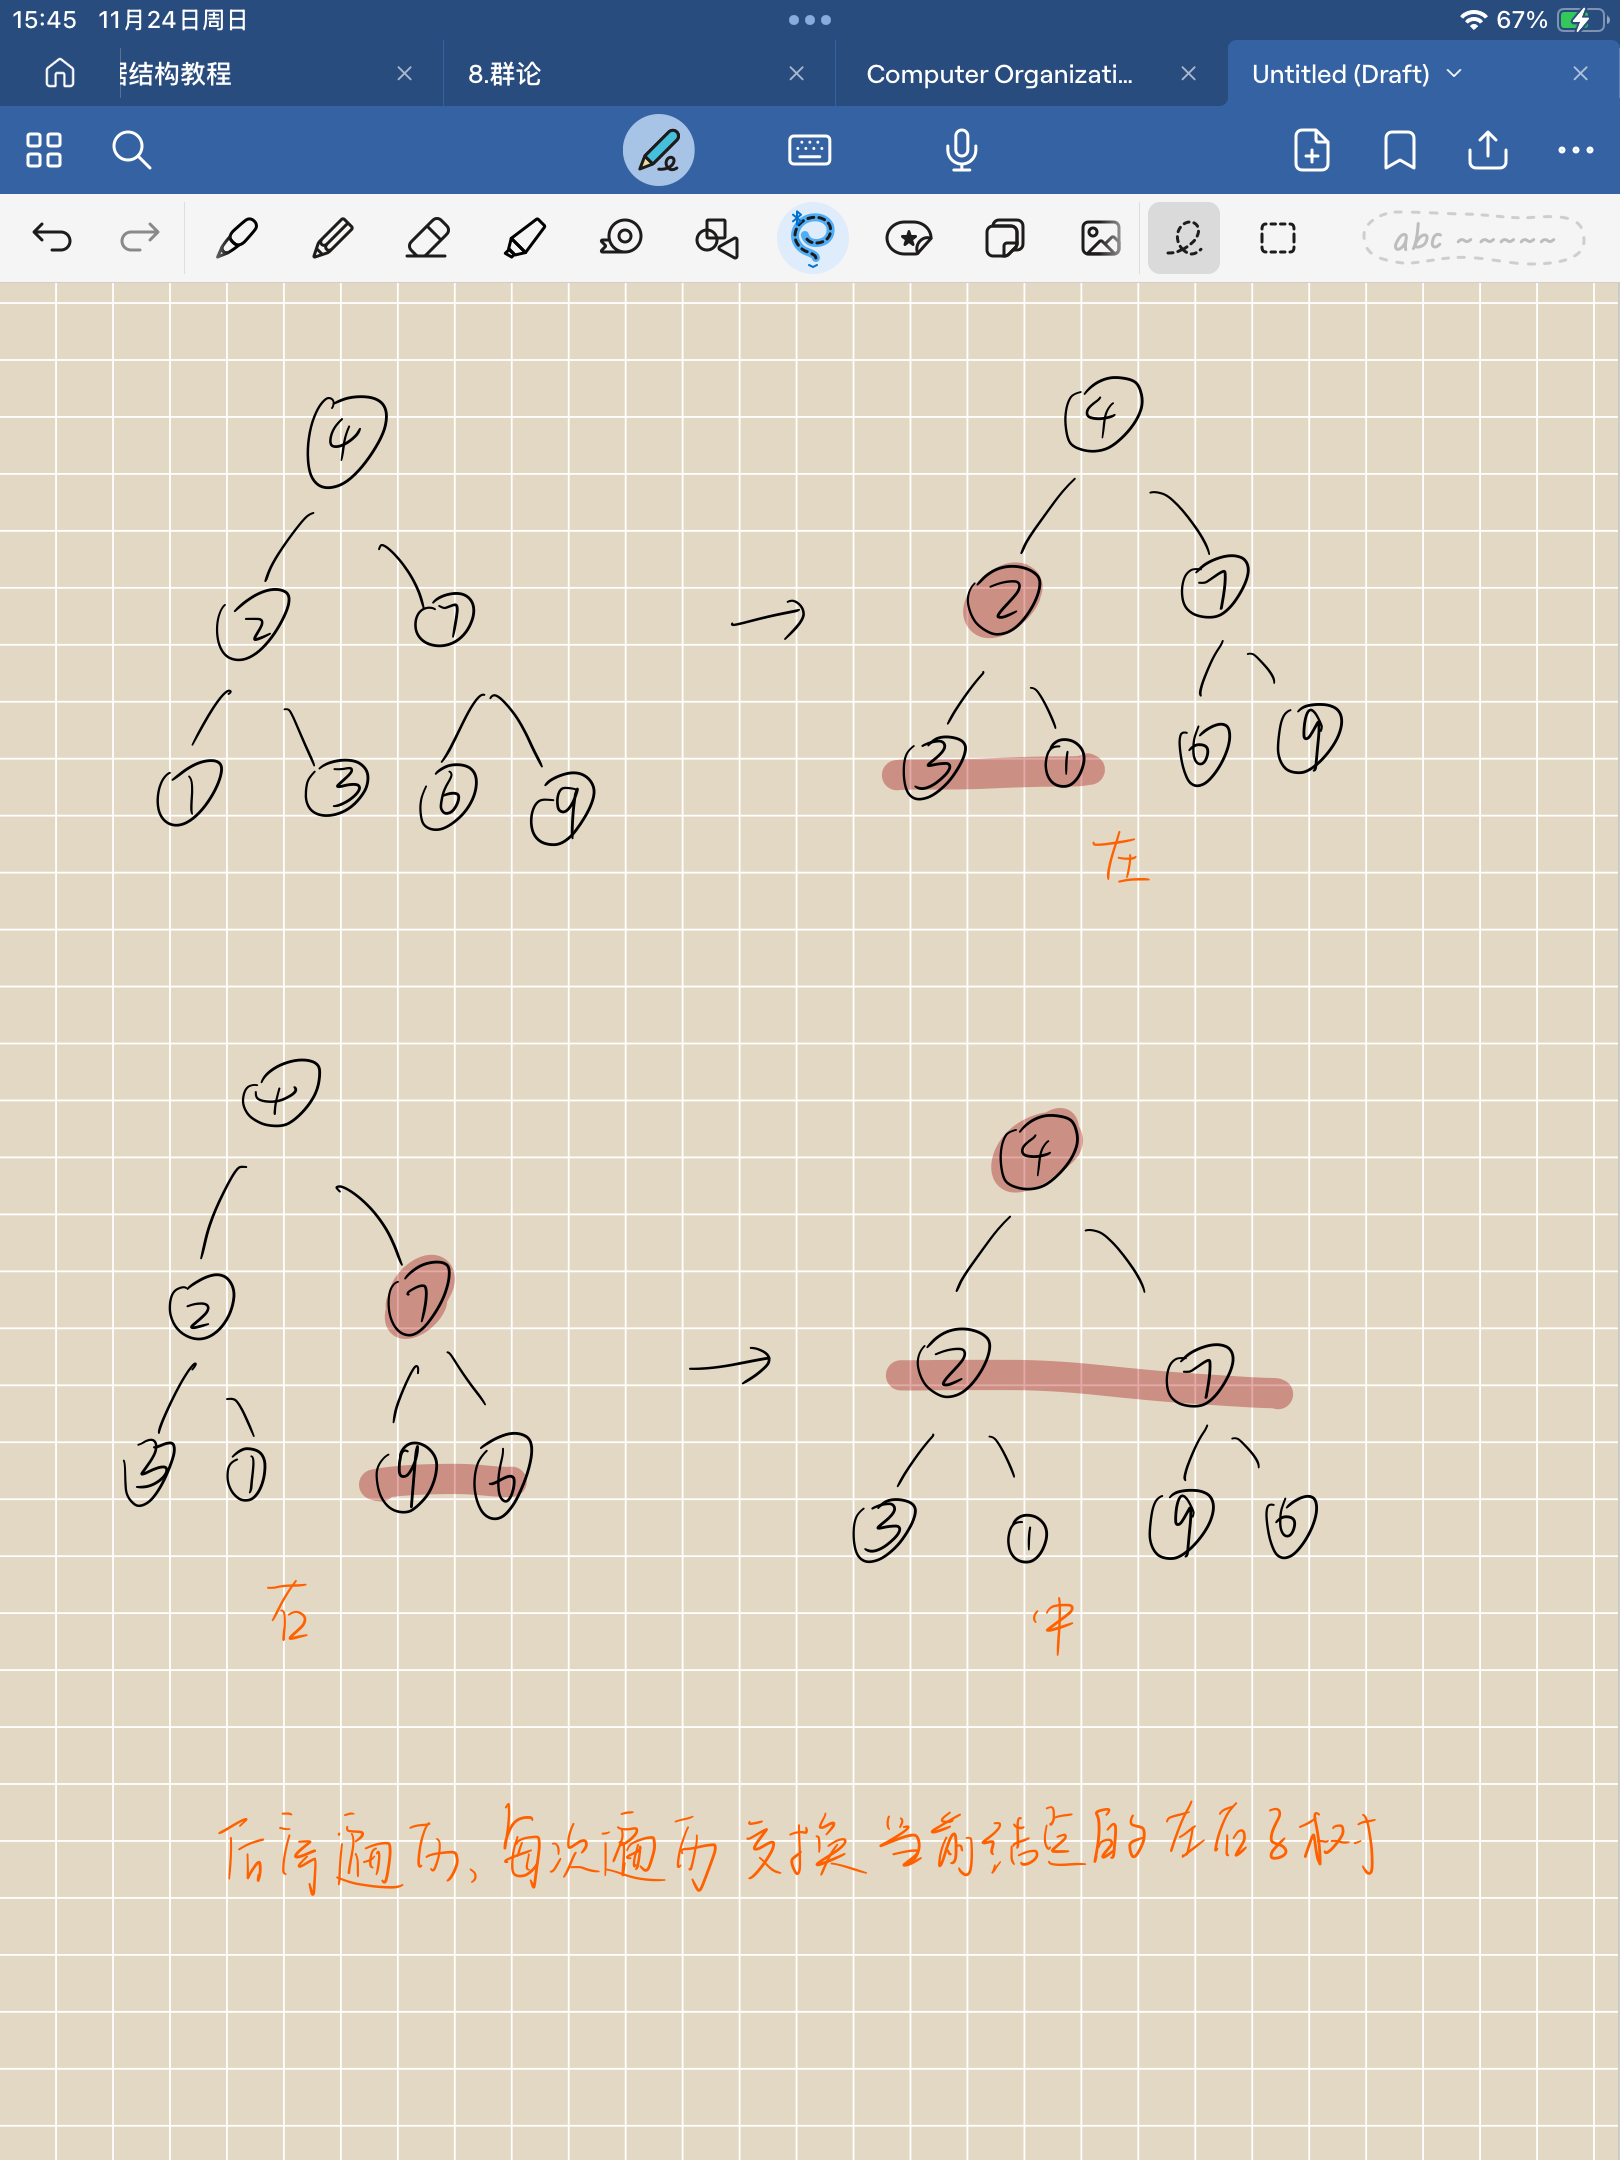 15:45 11月24日周日 67%
结构教程 8.群论 Computer Organizati... Untitled (Draft)
abc ~~~~~
4 4
2 7 2 7
1 3 6 9 3 1 6 9
左
4 4
2 7 2 7
3 1 9 6 3 1 9 6
右 中
后序遍历、每次遍历交换当前结点的左右子树